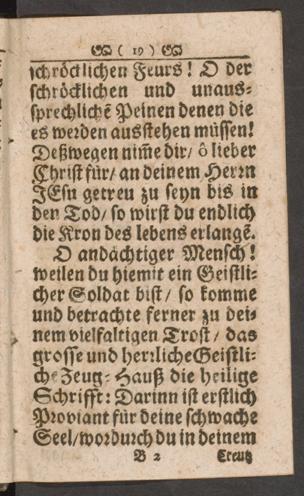 ( 19 )
schröcklichen Feurs! O der
schröcklichen und unaus-
sprechlichẽ Peinen denen die
es werden ausstehen müssen!
Deßwegen nim̃e dir/ ô lieber
Christ für/ an deinem Herrn
JEsu getreu zu seyn bis in
den Tod/ so wirst du endlich
die Kron des lebens erlangẽ.
O andächtiger Mensch!
weilen du hiemit ein Geistli-
cher Soldat bist/ so komme
und betrachte ferner zu dei-
nem vielfaltigen Trost/ das
grosse und herrliche Geistli-
che Zeug-Hauß die heilige
Schrifft: Darinn ist erstlich
Proviant für deine schwache
Seel/ wordurch du in deinem
B 2 Creutz